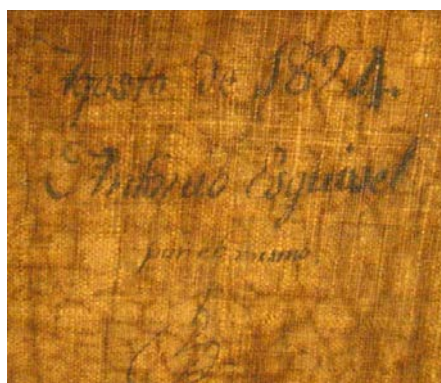 Agosto de 1824.
Antonio Esquivel
por el mismo